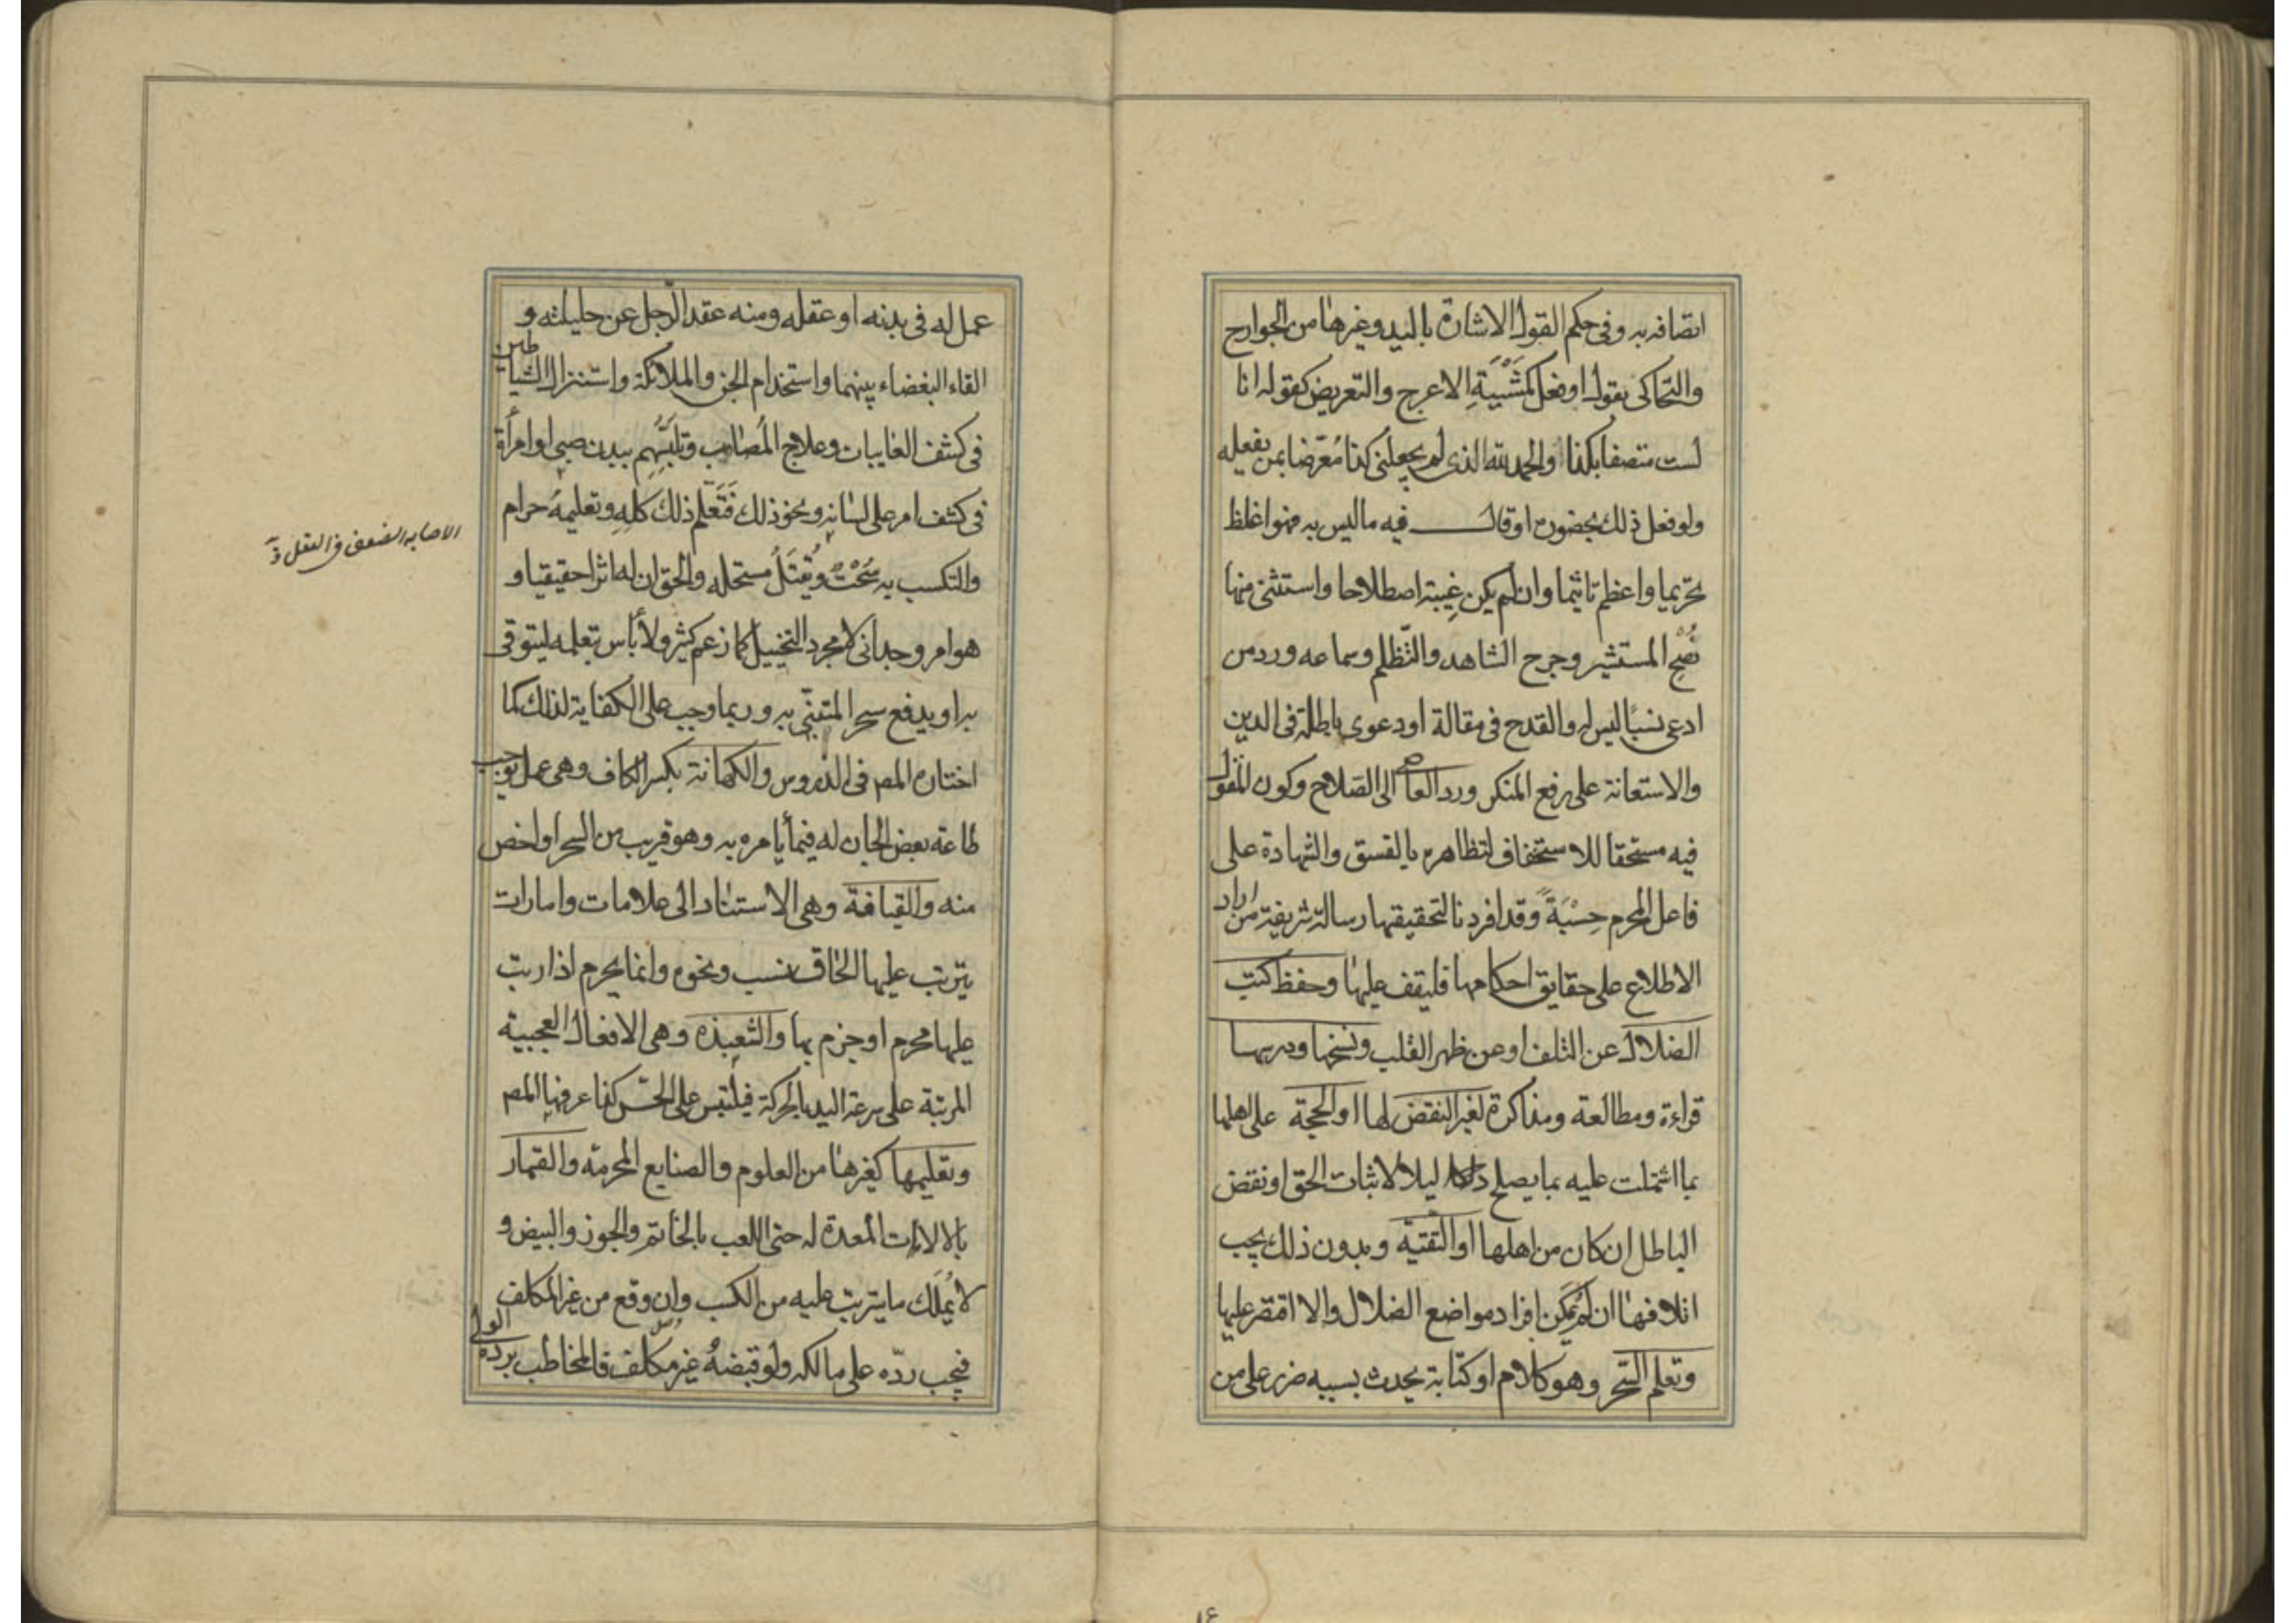 اتصافه به وفى حكم القول الاشارة باليد وغيرها من الجوارح
والتحاكى بقول او فعل كمشية الاعرج والتعريض كقوله انا
لست متصفا بكذا والحمد لله الذى لم يجعلنى كذا مُعَرّضا بمن يفعله
ولو فعل ذلك بحضوره او قال فيه ما ليس به فهو اغلظ
تحريما واعظم تاثيما وان لم يكن غيبة اصطلاحا واستثنى منها
نُصْحِ المستشير وجرح الشاهد والتّظلم وسماعه ورد من
ادعى نسبًا ليس له والقدح فى مقالة او دعوى باطلة فى الدين
والاستعانة على رفع المنكر ورد العاصى الى الصّلاح وكون المقول
فيه مستحقا للاستخفاف لتظاهره بالفسق والشهادة على
فاعل المحرم حِسْبَةً وقد افردنا لتحقيقها رسالة شريفة من اراد
الاطلاع على حقايق احكامها فليقف عليها وحفظ كتب
الضلال عن التلف او عن ظهر القلب ونسخها ودرسها
قراءة ومطالعة ومذاكرة لغير النقض لها او الحجة على اهلها
بما اشتملت عليه مما يصلح دليلا لاثبات الحق او نقض
الباطل ان كان من اهلها او التقيّة وبدون ذلك يجب
اتلافها ان لم يُمكن افراد مواضع الضلال والا اقتصر عليها
وتعلم السّحر وهو كلام او كتابة يحدث بسببه ضرر على من
عمل له فى بدنه او عقله ومنه عقد الرّجل عن حليلته و
القاء البغضاء بينهما واستخدام الجن والملائكة واستنزال الشياطين
فى كشف الغايبات وعلاج المُصاب وتلبّسهم ببدن صبى او امرأة
فى كشف امر على لسانه ونحو ذلك فَتَعَلّم ذلك كله وتعليمهُ حرام
والتكسب به سُحْتٌ ويُقتَلُ مستحله والحق ان له اثرا حقيقيا و
هو امر وجدانى لا مجرد التخييل كما زعم كثير ولا بأس بتعلمه ليتوقى
به او يدفع سحر المتنبّى به وربما وجب على الكفاية لذلك كما
اختاره المص فى الدروس والكهانة بكسر الكاف وهى عمل يوجب
طاعة بعض الجان له فيما يأمره به وهو قريب من السحر او اخص
منه والقيافة وهى الاستناد الى علامات وامارات
يترتب عليها الحاق نسب ونحوه وانما يحرم اذا رتب
عليها محرم او جزم بها والشعبذة وهى الافعال العجيبة
المرتبة على سرعة اليد بالحركة فيلتبس على الحسّ كذا عرفها المص
وتعليمها كغيرها من العلوم والصنايع المحرمة والقمار
بالالات المعدة له حتى اللعب بالخاتم والجوز والبيض و
لا يُملك ما يترتب عليه من الكسب وان وقع من غير المكلف
فيجب ردّه على مالكه ولو قبضهُ غير مكلف فالمخاطب برده الولى